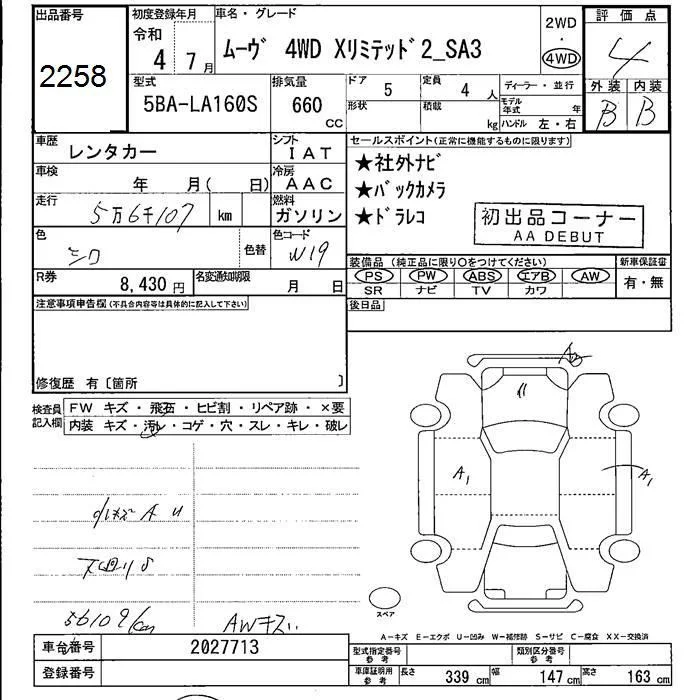 出品番号
2258
初度登録年月
令和
4 7月
車名・グレード
ムーヴ 4WD Xリミテッド2_SA3
2WD
・
4WD
評価点
4
外装 内装
B B
型式
5BA-LA160S
排気量
660 CC
ドア
5
定員
4 人
形状
積載
kg
ディーラー・並行
モデル年式 年
ハンドル 左・右
車歴
レンタカー
シフト
IAT
車検
年 月( 日)
冷房
AAC
走行
5万6千107 km
燃料
ガソリン
色
シロ
色替
色コード
W19
R券
8,430 円
名変通知期限
月 日
セールスポイント(正常に機能するものに限ります)
★社外ナビ
★バックカメラ
★ドラレコ
初出品コーナー
AA DEBUT
装備品(純正品に限り○をつけてください)
PS PW ABS エアB AW
SR ナビ TV カワ
新車保証書
有・無
後日品
注意事項申告欄(不具合内容等は具体的に記入して下さい)
修復歴 有〔箇所 〕
検査員記入欄
FW キズ・飛石・ヒビ割・リペア跡・×要
内装 キズ・汚レ・コゲ・穴・スレ・キレ・破レ
小キズ A U
下回りS
56109km
AWキズ
A2
A1
A1
スペア
A－キズ E－エクボ U－凹み W－補修跡 S－サビ C－腐食 XX－交換済
車台番号
2027713
登録番号
型式指定番号
参考
類別区分番号
参考
車庫証明用
参考
長さ 339 cm 幅 147 cm 高さ 163 cm